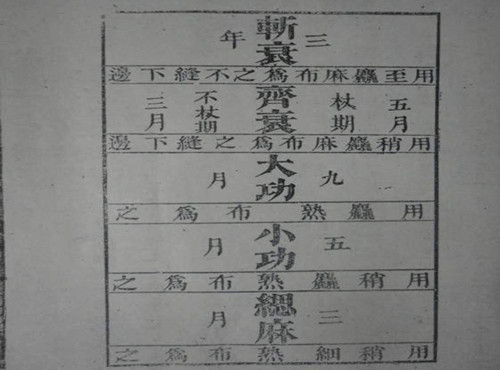 斬衰
三年
用至麤麻布為之不縫下邊
齊衰
五月
杖期
不杖期
三月
用稍麤麻布為之縫下邊
大功
九月
用麤熟布為之
小功
五月
用稍麤熟布為之
緦麻
三月
用稍細熟布為之